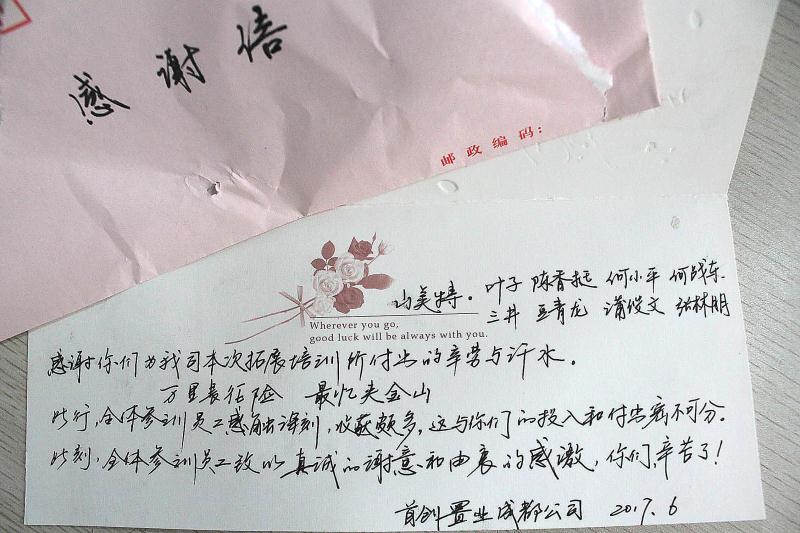 感谢信
邮政编码：
山美特. 叶子 陈香起 何小平 何战东
三井 豆青龙 蒲俊文 张林朋
Wherever you go,
good luck will be always with you.
感谢你们为我司本次拓展培训所付出的辛劳与汗水。
万里长征险 最忆夹金山
此行，全体参训员工感触深刻，收获颇多，这与你们的投入和付出密不可分。
此刻，全体参训员工致以真诚的谢意和由衷的感激，你们辛苦了！
首创置业成都公司 2017.6